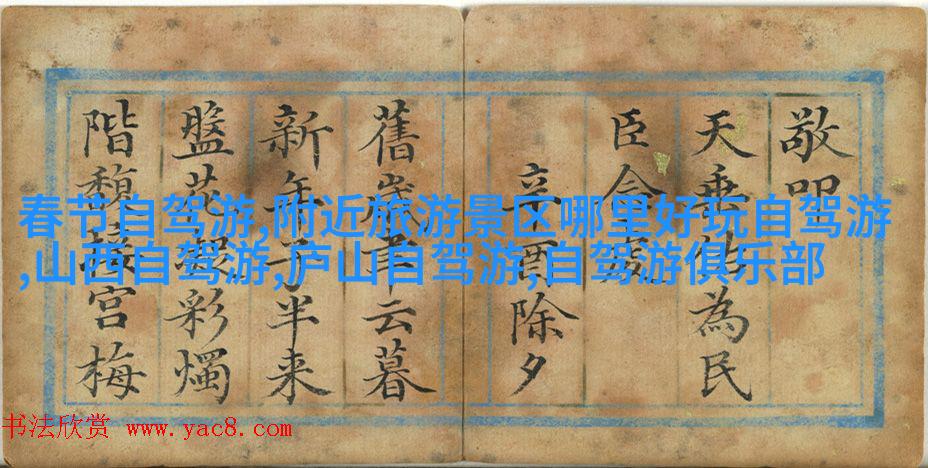 敬叩
天垂佑為民
臣
辛酉除夕
舊歲聿云暮
新年子半来
盤花凝彩燭
階馥接宫梅
春节自驾游,附近旅游景区哪里好玩自驾游
,山西自驾游,庐山自驾游,自驾游俱乐部
书法欣赏 www.yac8.com